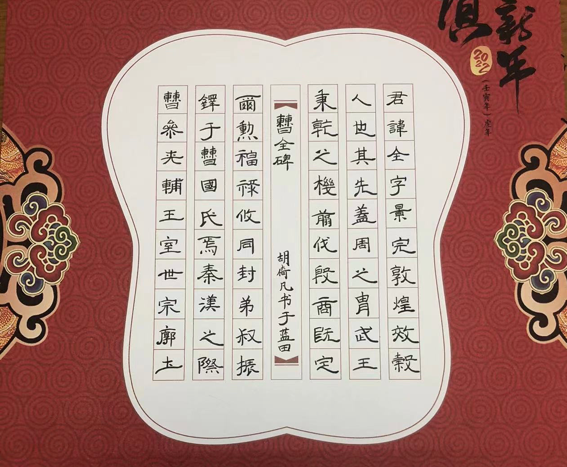 新年
2022
(壬寅年)虎年
君諱全字景完敦煌效穀
人也其先蓋周之胄武王
秉乾之機翦伐殷商既定
曹全碑
胡倚凡书于蓝田
爾勲福祿攸同封弟叔振
鐸于曹國氏焉秦漢之際
曹參夾輔王室世宗廓土